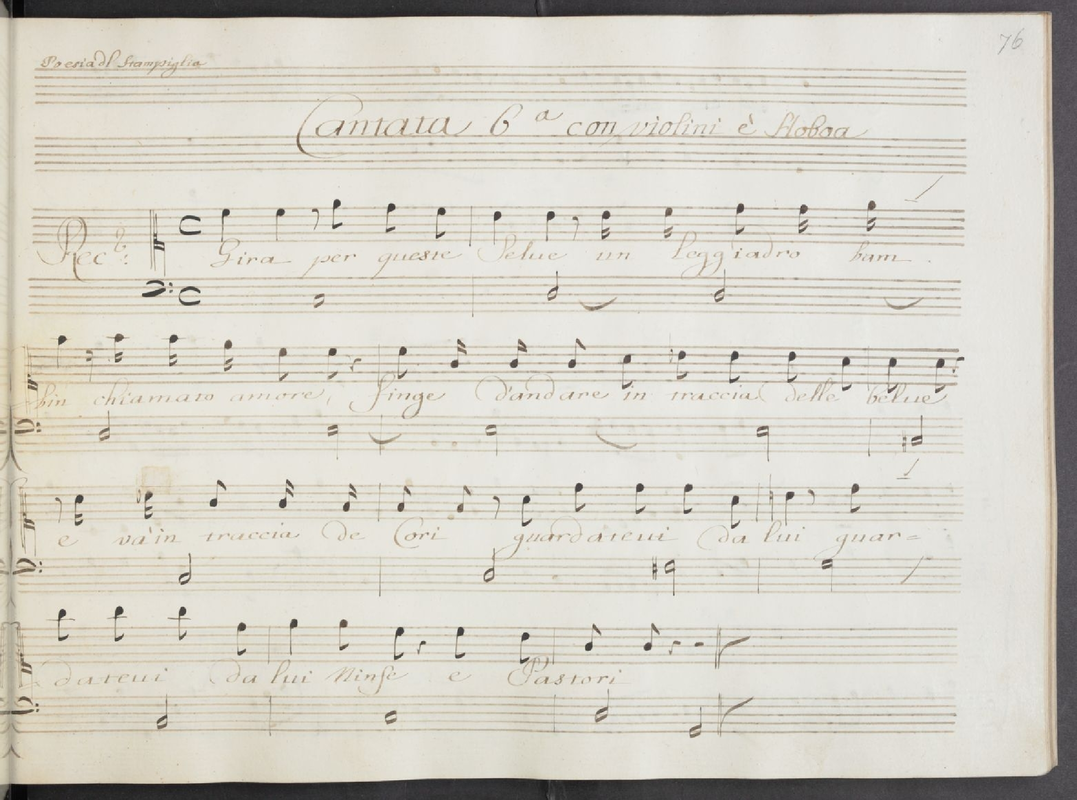 76
Poesia dl Stampiglia
Cantata 6a con violini è Hoboa
Rec
Gira per queste Selue un Leggiadro bam
bin chiamato amore, finge d'andare in traccia delle belue
e và in traccia de Cori guardateui da lui guar=
dateui da lui Ninfe e Pastori